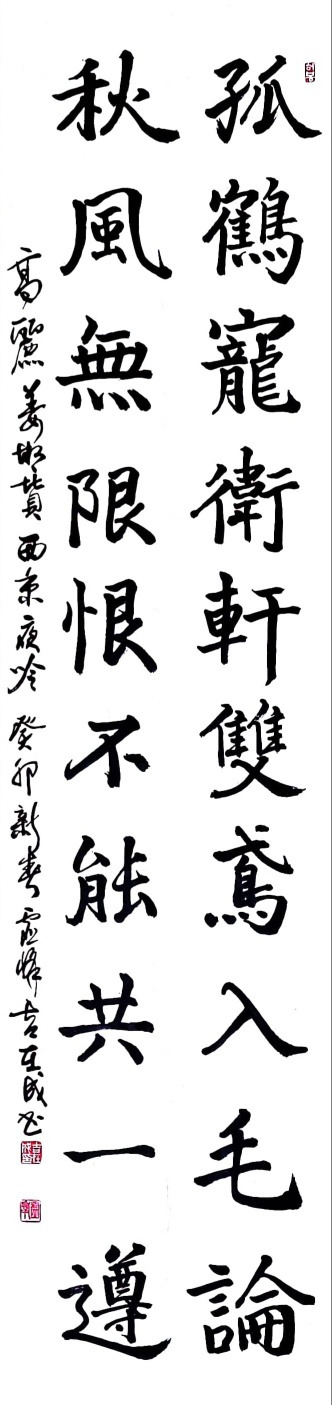 孤鶴寵衛軒雙鳶入毛論
秋風無限恨不能共一遵
高麗姜 西京夜吟 癸卯新春 吉 成書